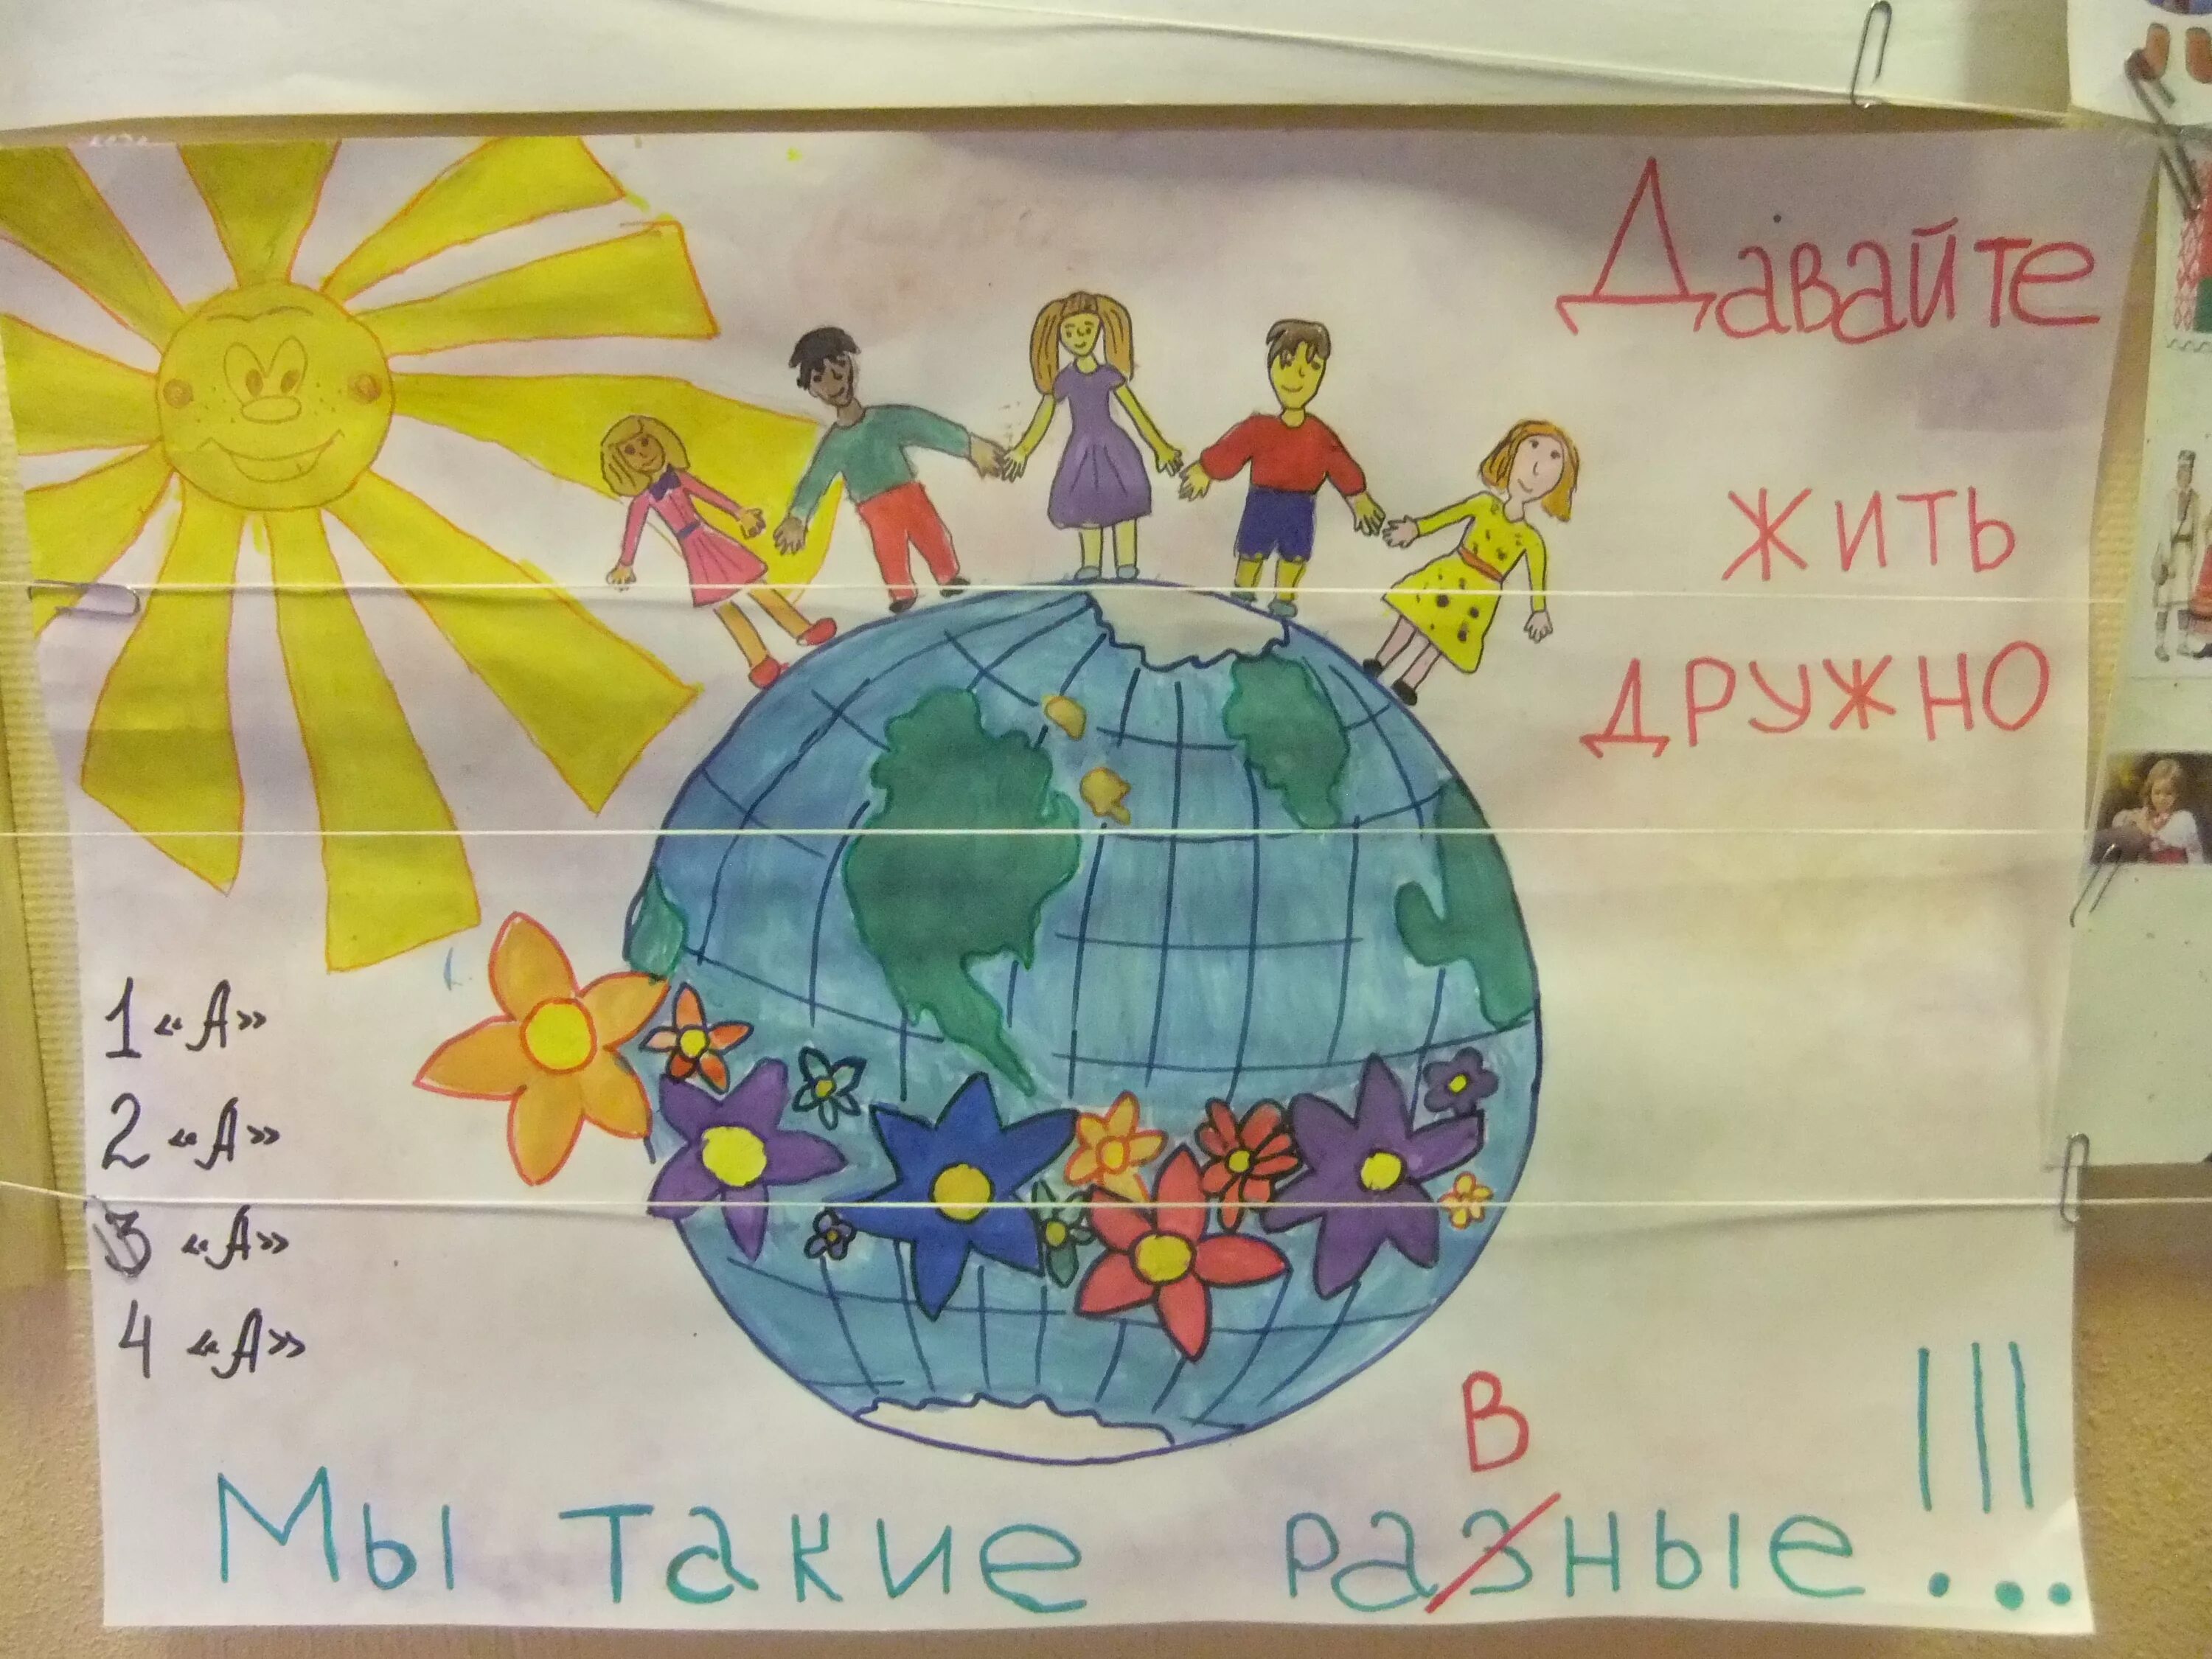 Давайте
жить
дружно
1 «А»
2 «А»
3 «А»
4 «А»
в
Мы такие разные...!!!